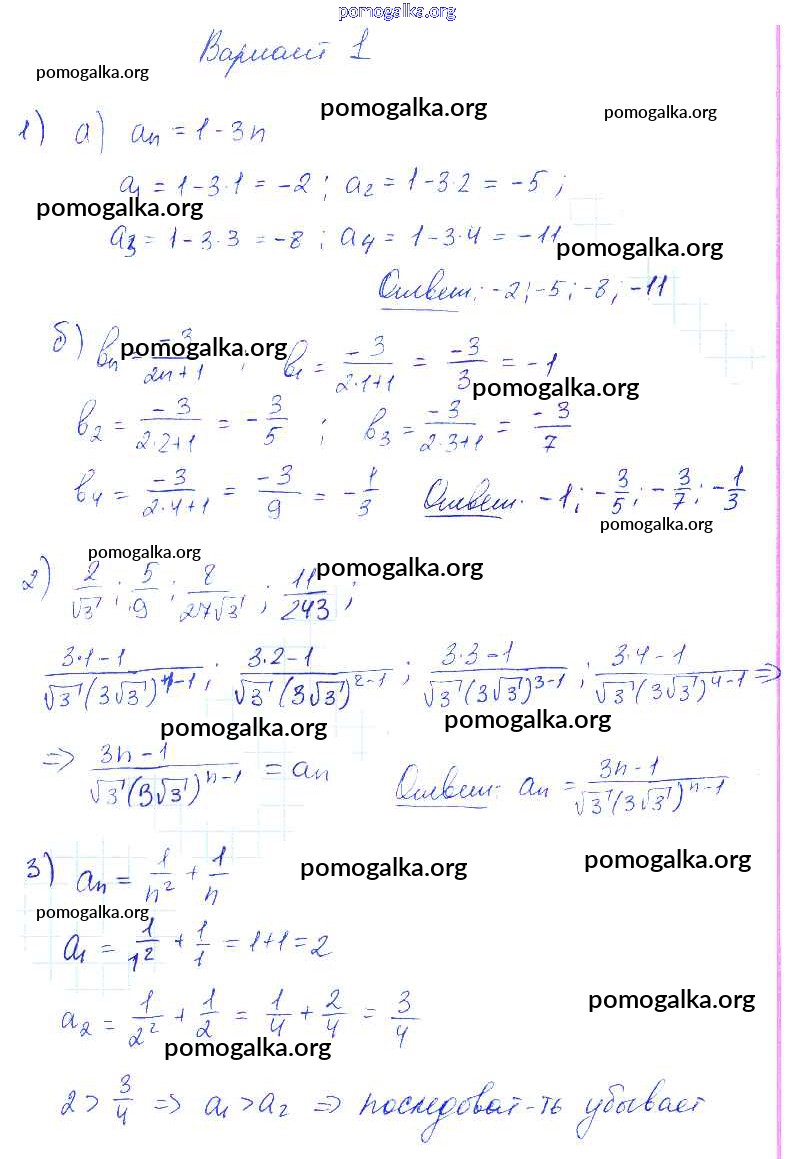 pomogalka.org
Вариант 1
pomogalka.org
pomogalka.org pomogalka.org
1) а) aₙ = 1 - 3n
a₁ = 1 - 3·1 = -2 ; a₂ = 1 - 3·2 = -5 ;
pomogalka.org
a₃ = 1 - 3·3 = -8 ; a₄ = 1 - 3·4 = -11
pomogalka.org
Ответ: -2 ; -5 ; -8 ; -11
б) bₙ = -3/(2n+1) ; b₁ = -3/(2·1+1) = -3/3 = -1
pomogalka.org
pomogalka.org
b₂ = -3/(2·2+1) = -3/5 ; b₃ = -3/(2·3+1) = -3/7
b₄ = -3/(2·4+1) = -3/9 = -1/3 Ответ: -1 ; -3/5 ; -3/7 ; -1/3
pomogalka.org
pomogalka.org
pomogalka.org
2) 2/√3 ; 5/9 ; 8/(27√3) ; 11/243 ;
(3·1-1)/(√3(3√3)^(1-1)) ; (3·2-1)/(√3(3√3)^(2-1)) ; (3·3-1)/(√3(3√3)^(3-1)) ; (3·4-1)/(√3(3√3)^(4-1)) =>
pomogalka.org pomogalka.org
=> (3n-1)/(√3(3√3)^(n-1)) = aₙ Ответ: aₙ = (3n-1)/(√3(3√3)^(n-1))
3) aₙ = 1/n² + 1/n
pomogalka.org pomogalka.org
pomogalka.org
a₁ = 1/1² + 1/1 = 1+1 = 2
a₂ = 1/2² + 1/2 = 1/4 + 2/4 = 3/4
pomogalka.org
pomogalka.org
2 > 3/4 => a₁ > a₂ => последоват-ть убывает